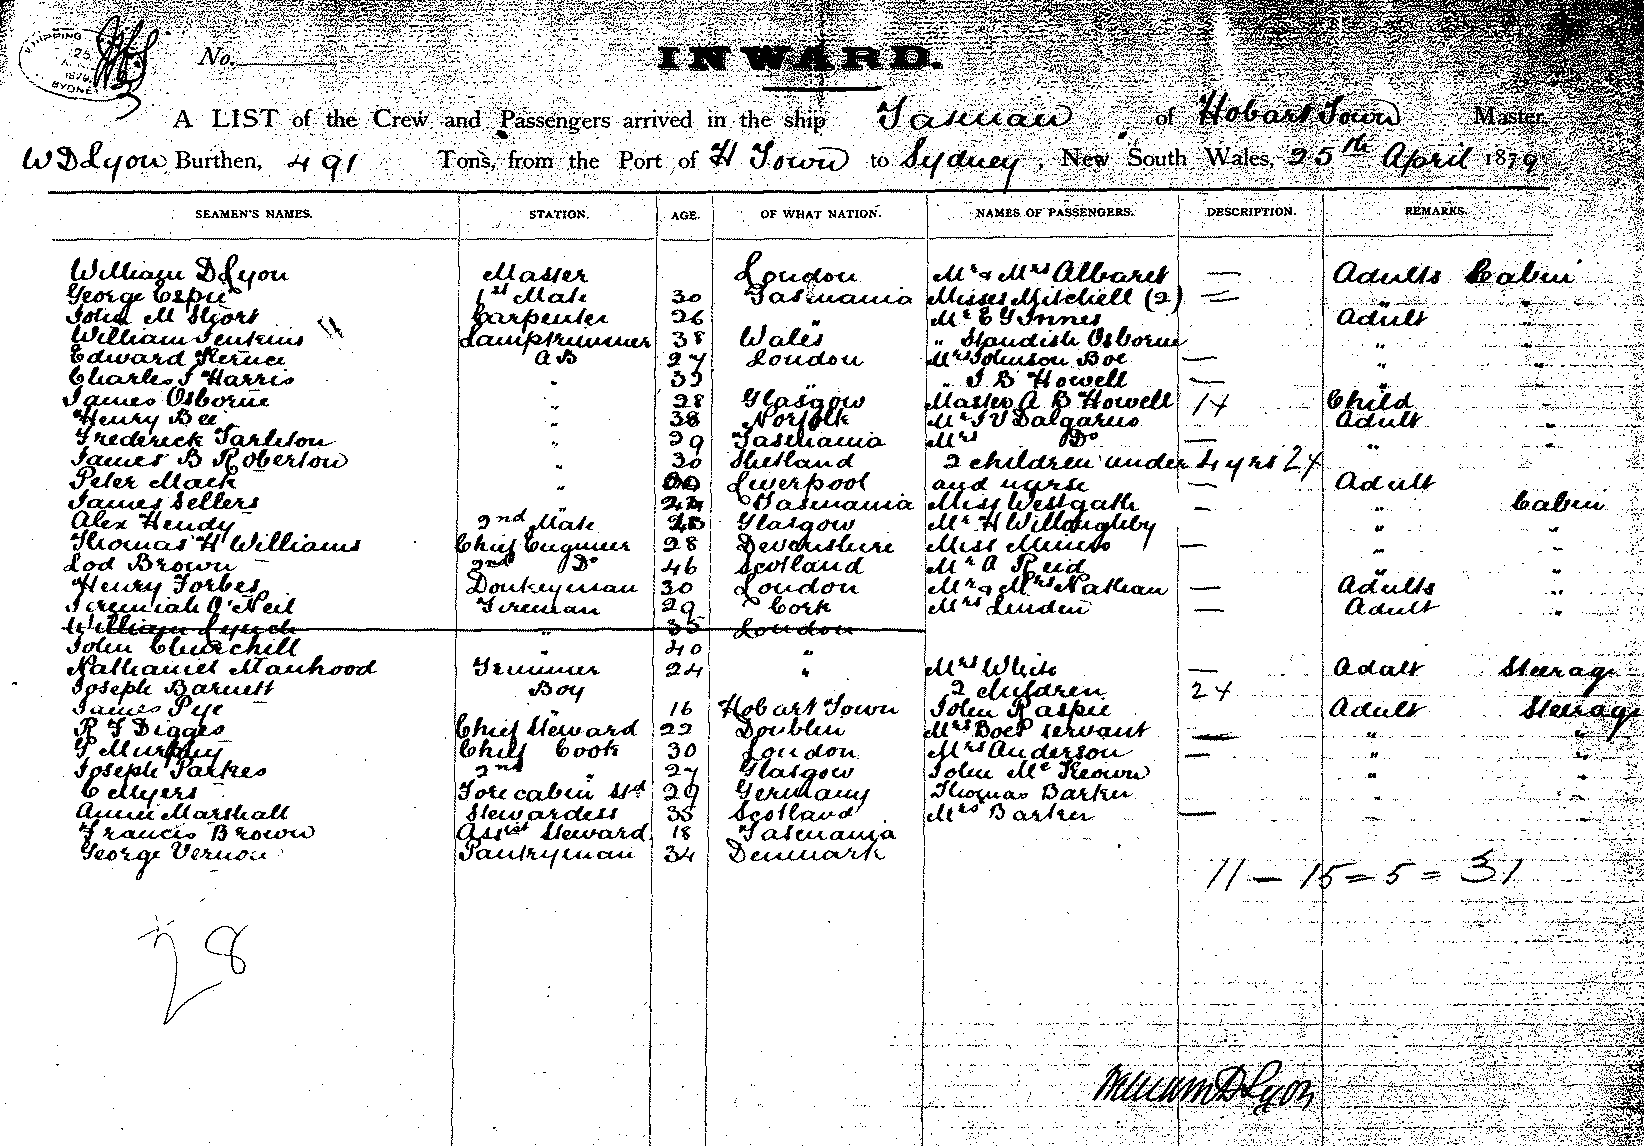 SHIPPING
25
1879
SYDNEY
No.
INWARD.
A LIST of the Crew and Passengers arrived in the ship Tasman of Hobart Town Master
W D Lyon Burthen, 491 Tons, from the Port of H Town to Sydney, New South Wales, 25th April 1879
SEAMEN'S NAMES. STATION. AGE. OF WHAT NATION. NAMES OF PASSENGERS. DESCRIPTION. REMARKS.
William D Lyon Master London Mr & Mrs Albaret — Adults Cabin
George Espie 1st Mate 30 Tasmania Misses Mitchell (2) = " "
John M Short Carpenter 26 " Mr E G Innes Adult "
William Jenkins Lamptrimmer 38 Wales " Standish Osborne " "
Edward AB 27 London Mrs Johnson Boe — " "
Charles J Harris " 35 " " J B Howell — " "
James Osborne " 28 Glasgow Master A B Howell 14 Child
Henry Bee " 38 Norfolk Mr J V Dalgarno Adult "
Frederick Tarleton " 29 Tasmania Mrs Do — " "
James B Roberton " 30 Shetland 2 children under 4 yrs 24
Peter Mack " Liverpool and nurse — Adult
James Sellers " Tasmania Miss Westgath — " Cabin
Alex Hendy 2nd Mate Glasgow Mr H Willoughby " "
Thomas H Williams Chief Engineer 28 Devonshire Miss — " "
Lod Brown 2nd Do 46 Scotland Mr A Reid " "
Henry Forbes Donkeyman 30 London Mr & Mrs Nathan — Adults "
Jeremiah O'Neil Fireman 29 Cork Mrs Linden — Adult "
William Lynch " 35 London
John Churchill " 40 "
Nathaniel Manhood Trimmer 24 " Mrs White — Adult Steerage
Joseph Barnett Boy 2 children 24
James Pye " 16 Hobart Town John Raspie Adult Steerage
R J Digges Chief Steward 22 Doublin Mrs Boes servant — " "
G Murphy Chief Cook 30 London Mrs Anderson — " "
Joseph Parkes 2nd " 27 Glasgow John McKeown " "
C Myers Forecabin Std 29 Germany Thomas Barker " "
Annie Marshall Stewardess 35 Scotland Mrs Barker — " "
Francis Brown Assist Steward 18 Tasmania
George Vernon Pantryman 34 Denmark
11 — 15 = 5 = 31
28
William D Lyon